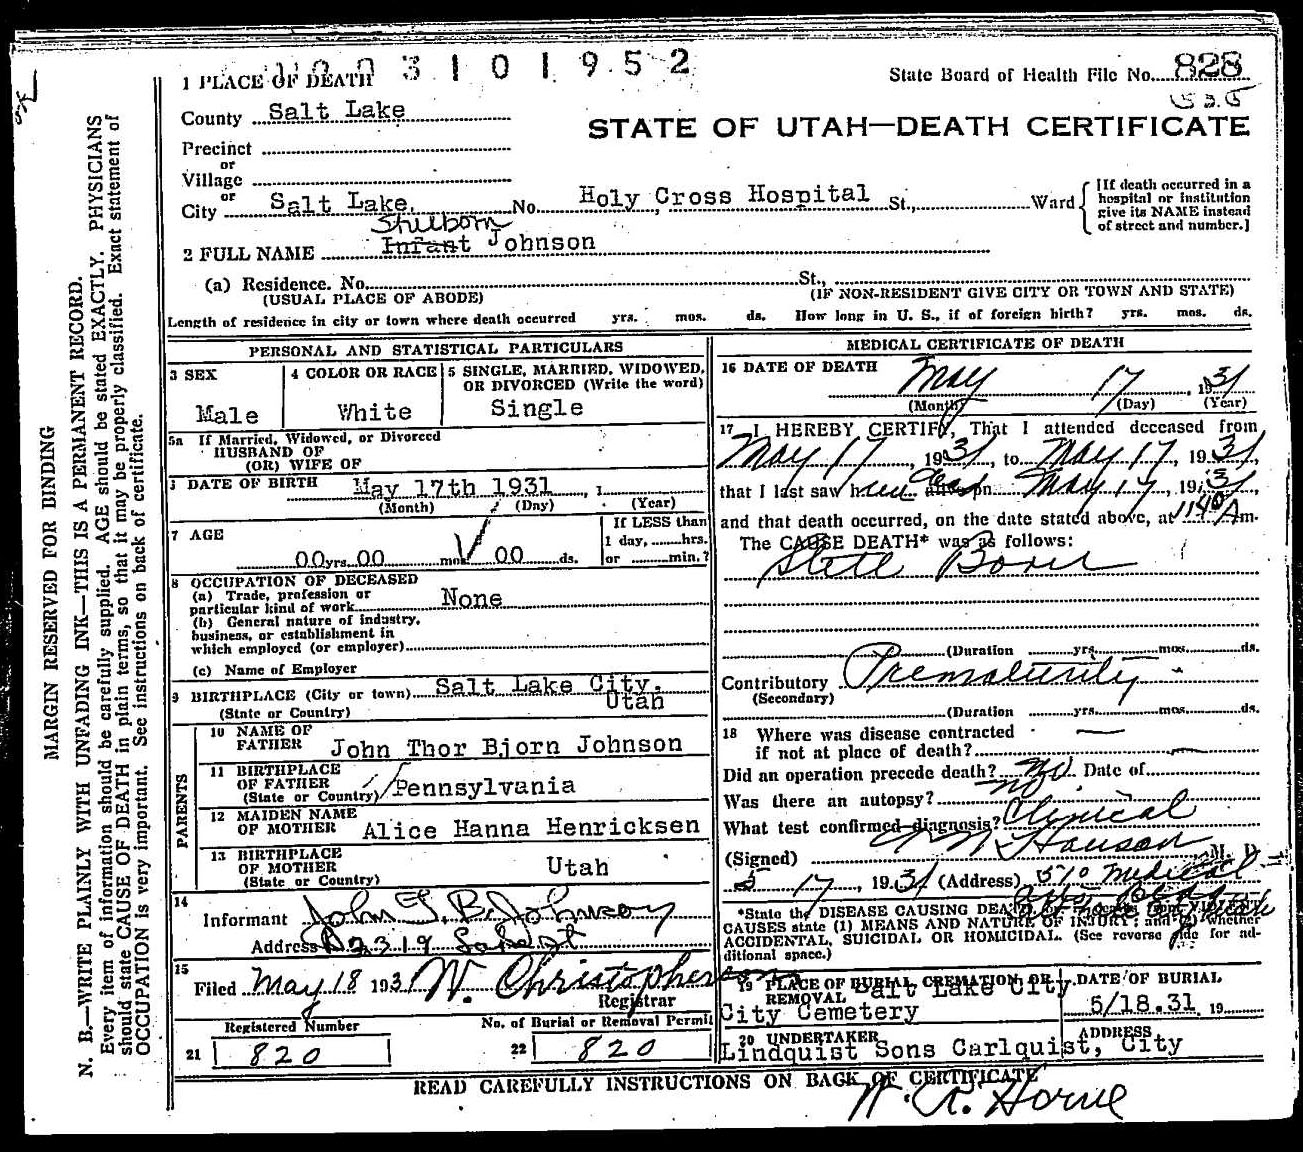 3 1 0 1 9 5 2
State Board of Health File No. 828
STATE OF UTAH—DEATH CERTIFICATE
1 PLACE OF DEATH
County Salt Lake
Precinct
or
Village
or
City Salt Lake. No. Holy Cross Hospital St., Ward
[If death occurred in a
hospital or institution
give its NAME instead
of street and number.]
Stillborn
2 FULL NAME Infant Johnson
(a) Residence. No. St.,
(USUAL PLACE OF ABODE) (IF NON-RESIDENT GIVE CITY OR TOWN AND STATE)
Length of residence in city or town where death occurred yrs. mos. ds. How long in U. S., if of foreign birth? yrs. mos. ds.
PERSONAL AND STATISTICAL PARTICULARS
3 SEX
Male
4 COLOR OR RACE
White
5 SINGLE, MARRIED, WIDOWED,
OR DIVORCED (Write the word)
Single
5a If Married, Widowed, or Divorced
HUSBAND OF
(OR) WIFE OF
DATE OF BIRTH May 17th 1931
(Month) (Day) (Year)
7 AGE
00 yrs. 00 mos. 00 ds.
If LESS than
1 day, hrs.
or min.?
8 OCCUPATION OF DECEASED
(a) Trade, profession or
particular kind of work None
(b) General nature of industry,
business, or establishment in
which employed (or employer)
(c) Name of Employer
9 BIRTHPLACE (City or town) Salt Lake City.
(State or Country) Utah
PARENTS
10 NAME OF
FATHER John Thor Bjorn Johnson
11 BIRTHPLACE
OF FATHER
(State or Country) Pennsylvania
12 MAIDEN NAME
OF MOTHER Alice Hanna Henricksen
13 BIRTHPLACE
OF MOTHER
(State or Country) Utah
14
Informant John T. B. Johnson
Address
15
Filed May 18 1931 W. Christopherson
Registrar
Registered Number
21 820
No. of Burial or Removal Permit
22 820
MEDICAL CERTIFICATE OF DEATH
16 DATE OF DEATH
May 17 1931
(Month) (Day) (Year)
17 I HEREBY CERTIFY, That I attended deceased from
May 17, 1931, to May 17, 1931,
that I last saw h alive on May 17, 1931
and that death occurred, on the date stated above, at 1140 A m.
The CAUSE DEATH* was as follows:
Still Born
(Duration yrs. mos. ds.
Contributory Prematurity
(Secondary)
(Duration yrs. mos. ds.
18 Where was disease contracted
if not at place of death?
Did an operation precede death? no Date of
Was there an autopsy? no
What test confirmed diagnosis? Clinical
(Signed) Hanson M. D.
5 17, 1931 (Address) 510 Medical
*State the DISEASE CAUSING DEATH, or in deaths from VIOLENT
CAUSES state (1) MEANS AND NATURE OF INJURY; and (2) whether
ACCIDENTAL, SUICIDAL OR HOMICIDAL. (See reverse side for ad-
ditional space.)
19 PLACE OF BURIAL, CREMATION OR
REMOVAL Salt Lake City
City Cemetery
DATE OF BURIAL
5/18.31 19
20 UNDERTAKER ADDRESS
Lindquist Sons Carlquist, City
READ CAREFULLY INSTRUCTIONS ON BACK OF CERTIFICATE
MARGIN RESERVED FOR BINDING
N. B.—WRITE PLAINLY WITH UNFADING INK—THIS IS A PERMANENT RECORD.
Every item of information should be carefully supplied. AGE should be stated EXACTLY. PHYSICIANS
should state CAUSE OF DEATH in plain terms, so that it may be properly classified. Exact statement of
OCCUPATION is very important. See instructions on back of certificate.